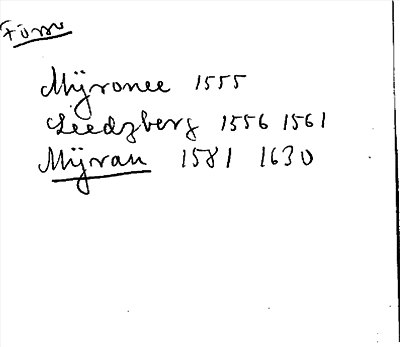 Forss
Mÿronee 1555
Leedzberg 1556 1561
Mÿran 1581 1630